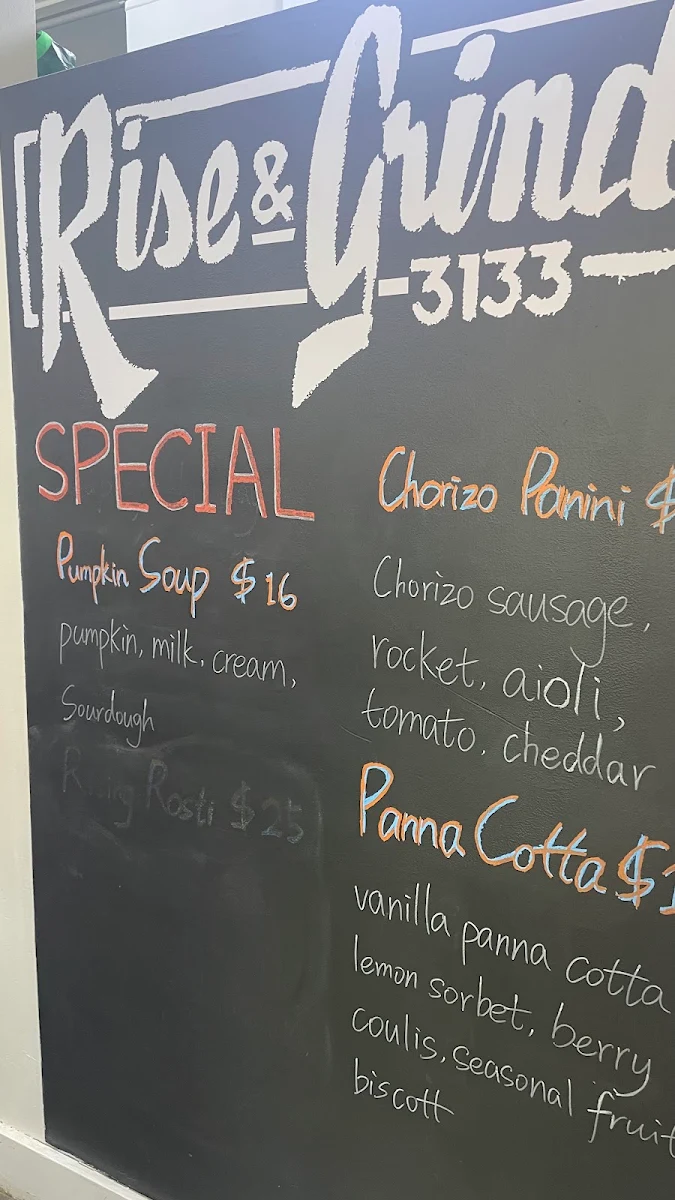 Rise & Grind
3133
SPECIAL
Pumpkin Soup $16
pumpkin, milk, cream,
Sourdough
Rosti $25
Chorizo Panini $
Chorizo sausage,
rocket, aioli,
tomato, cheddar
Panna Cotta $1
vanilla panna cotta
lemon sorbet, berry
coulis, seasonal fruit
biscotti